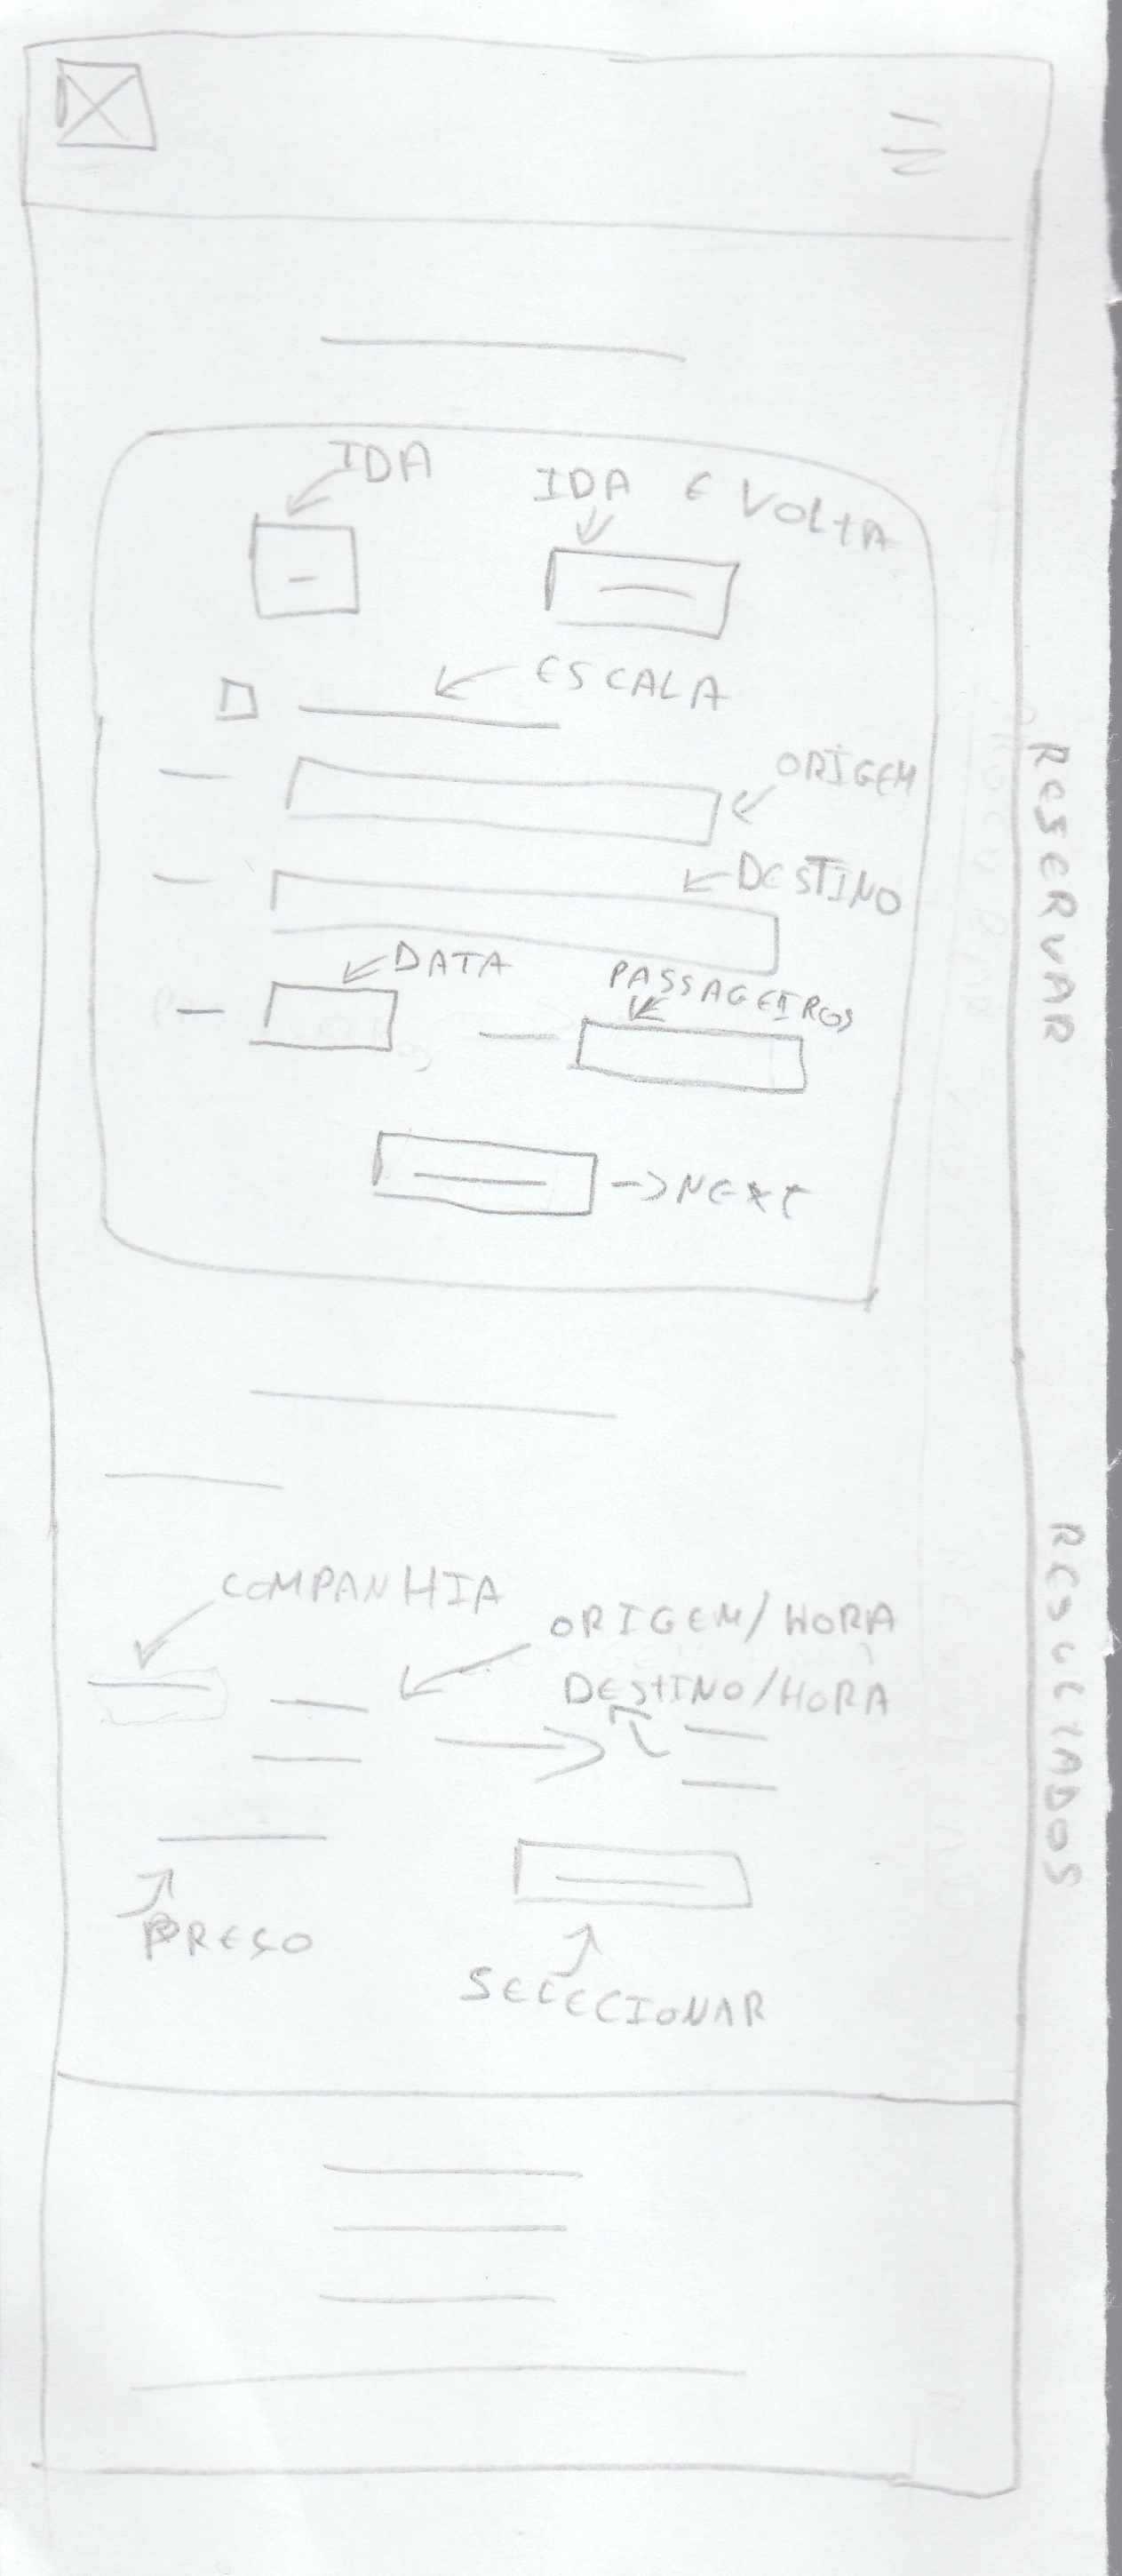 IDA
IDA E VOLTA
ESCALA
ORIGEM
DESTINO
DATA
PASSAGEIROS
NEXT
RESERVAR
COMPANHIA
ORIGEM/HORA
DESTINO/HORA
PRESO
SELECIONAR
RESULTADOS